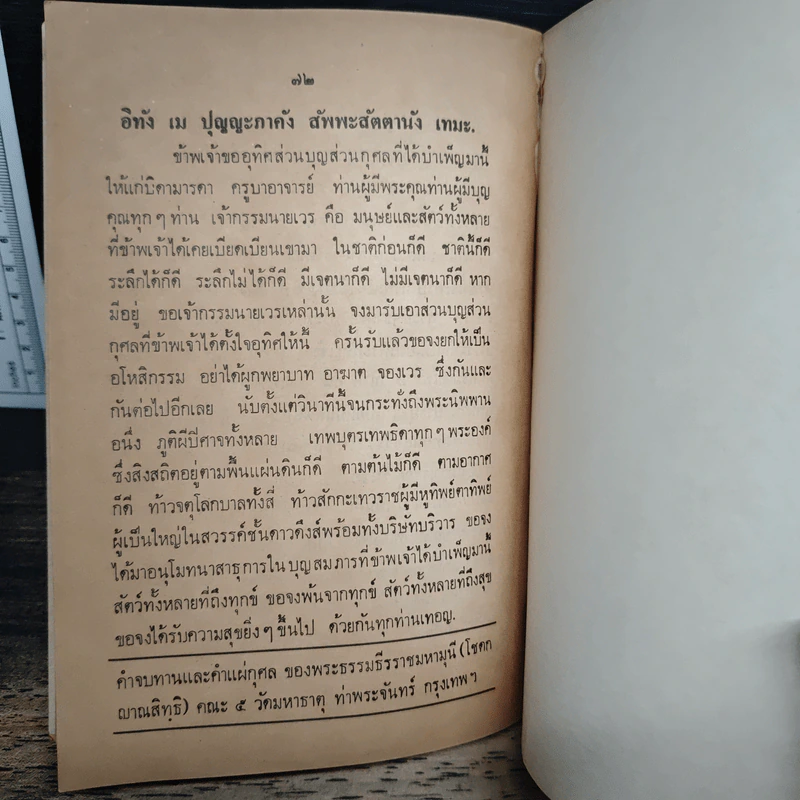 ๗๒
อิทัง เม ปุญญะภาคัง สัพพะสัตตานัง เทมะ.
ข้าพเจ้าขออุทิศส่วนบุญส่วนกุศลที่ได้บำเพ็ญมานี้
ให้แก่บิดามารดา ครูบาอาจารย์ ท่านผู้มีพระคุณท่านผู้มีบุญ
คุณทุก ๆ ท่าน เจ้ากรรมนายเวร คือ มนุษย์และสัตว์ทั้งหลาย
ที่ข้าพเจ้าได้เคยเบียดเบียนเขามา ในชาติก่อนก็ดี ชาตินี้ก็ดี
ระลึกได้ก็ดี ระลึกไม่ได้ก็ดี มีเจตนาก็ดี ไม่มีเจตนาก็ดี หาก
มีอยู่ ขอเจ้ากรรมนายเวรเหล่านั้น จงมารับเอาส่วนบุญส่วน
กุศลที่ข้าพเจ้าได้ตั้งใจอุทิศให้นี้ ครั้นรับแล้วขอจงยกให้เป็น
อโหสิกรรม อย่าได้ผูกพยาบาท อาฆาต จองเวร ซึ่งกันและ
กันต่อไปอีกเลย นับตั้งแต่วินาทีนี้จนกระทั่งถึงพระนิพพาน
อนึ่ง ภูติผีปีศาจทั้งหลาย เทพบุตรเทพธิดาทุก ๆ พระองค์
ซึ่งสิงสถิตอยู่ตามพื้นแผ่นดินก็ดี ตามต้นไม้ก็ดี ตามอากาศ
ก็ดี ท้าวจตุโลกบาลทั้งสี่ ท้าวสักกะเทวราชผู้มีหูทิพย์ตาทิพย์
ผู้เป็นใหญ่ในสวรรค์ชั้นดาวดึงส์พร้อมทั้งบริษัทบริวาร ขอจง
ได้มาอนุโมทนาสาธุการใน บุญสมภารที่ข้าพเจ้าได้บำเพ็ญมานี้
สัตว์ทั้งหลายที่ถึงทุกข์ ขอจงพ้นจากทุกข์ สัตว์ทั้งหลายที่ถึงสุข
ขอจงได้รับความสุขยิ่ง ๆ ขึ้นไป ด้วยกันทุกท่านเทอญ.
คำจบทานและคำแผ่กุศล ของพระธรรมธีรราชมหามุนี (โชดก
ญาณสิทฺธิ) คณะ ๕ วัดมหาธาตุ ท่าพระจันทร์ กรุงเทพฯ